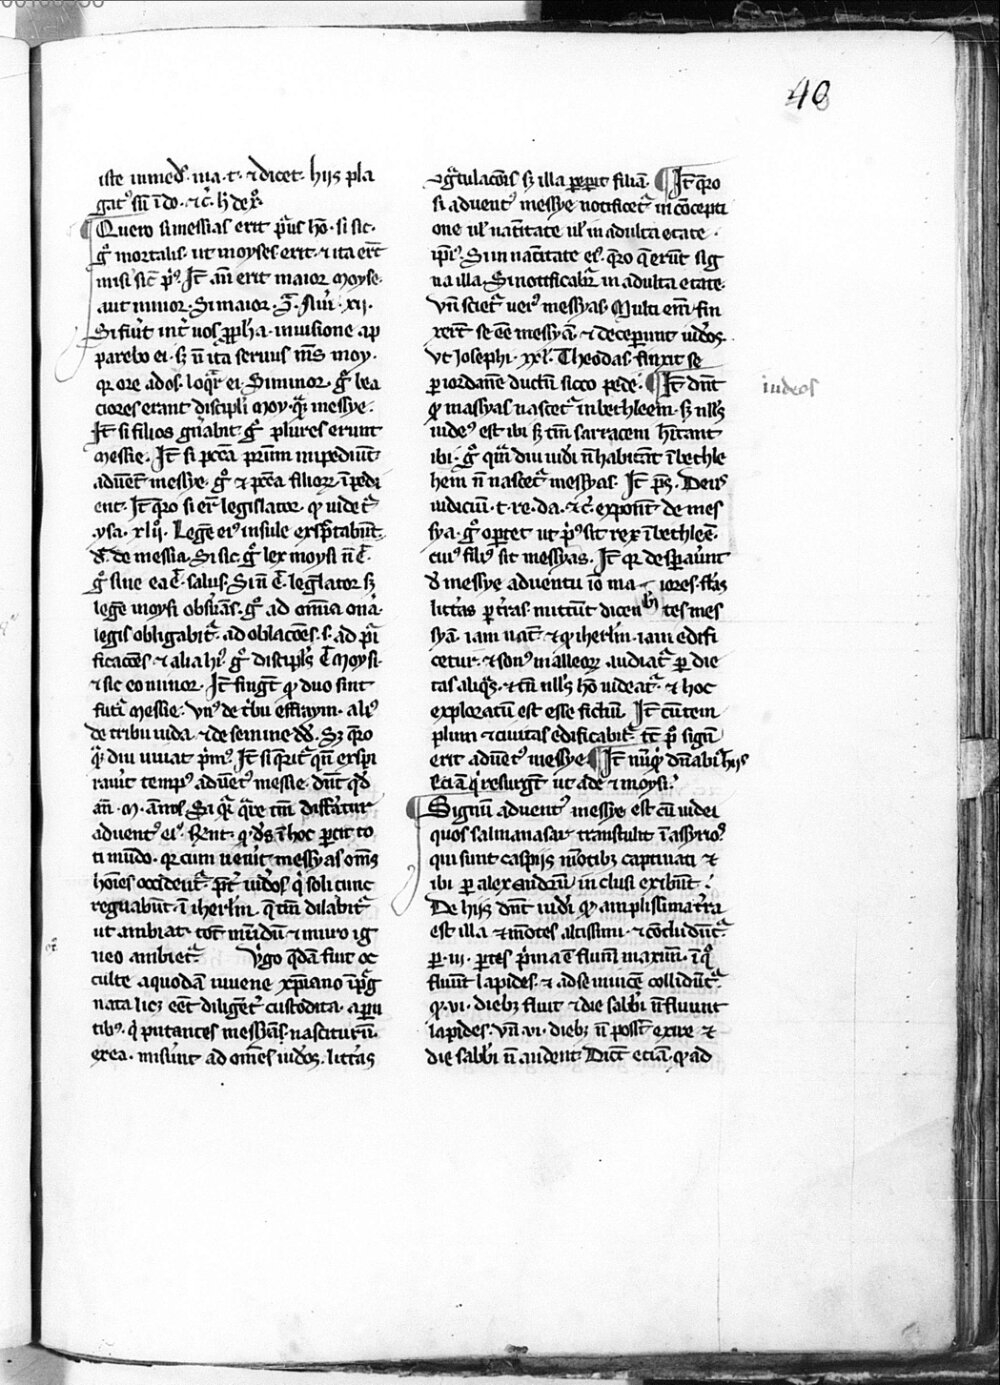 48
iste in med̅ · ma · t · ⁊ dicet · hijs pla
gatꝰ su̅ i̅ do · ⁊c̅ · h̅ dex̅ ·
Quero si messias erit p̅us ho̅ · si sic ·
gͦ mortalis · ut moyses erit · ⁊ ita er̅t
nisi sic̅ pͥꝰ It̅ an̅ erit maior moyse ·
aut minor · Si maior · Nu̅i · xij ·
Si fiu̅t int̅ uos ꝓph̅a · in uisione ap
parebo ei · sꝫ n̅ ita seruus m̅s moy ·
qꝛ ore ad os · loq̅r ei · Si minor · gͦ lea
ciores erant discipl̅i moy · qᷓꝫ messye ·
It̅ si filios gn̅abit gͦ plures erunt
messie · It̅ si pc̅ca p̅mu̅ impediu̅t
aduent̅ messye · gͦ ⁊ pc̅ca filioꝝ i̅pedi
ent · It̅ q̅ro si er̅ legislator · ꝙ uidet̅
ysa · xlij · Lege̅ eiꝰ insule exspc̅tabu̅t ·
de messia · Si sic · gͦ lex moysi n̅ e̅ ·
gͦ siue ea e̅ · salus · Si n̅ e̅ · leg̅lator sꝫ
lege̅ moysi obs̅uas · gͦ ad om̅ia on̅a ·
legis obligabit̅ · ad oblac̅o̅es · s · ad p̅ri
ficac̅o̅es · ⁊ alia hꝰ · gͦ discipl̅s e̅ moysi ·
⁊ sic eo minor · It̅ fingu̅t ꝙ duo sint
futi̅ messie · Vnꝰ de t̅bu effraym · aliꝰ
de tribu iuda · ⁊ de semine dd̅ · Sꝫ q̅ro
qᷓ diu uiuat p̅mꝰ · It̅ si q̅rit̅ qn̅ exspi
rauit tempꝰ aduent̅ messie · dn̅t qd̅
an̅ · m · annos Si qᷓ q̅re tm̅ differatur
aduentꝰ eiꝰ · Rn̅t · ꝙ d̅s i̅ hoc parcit to
ti mu̅do · qꝛ cum uen̅it messyas om̅s
ho̅ies occident̅ · p̅t̅ iud̅os q̅ soli tunc
regnabu̅t i̅ ihrl̅m · q̅ tm̅ dilabit̅
ut ambiat · tot̅ mu̅du̅ ⁊ muro ig
neo ambiet̅ · Virgo q̅dam fuit oc
culte a quodam iuuene xp̅iano i̅pg̅
nata licꝫ eet̅ diligent̅ custodita · a par̅
tibꝰ · q̅ putantes messyas · nasciturum̅ ·
ex ea · misu̅t ad om̅es iud̅os · litt̅as
⁊ gᷓtulac̅o̅is sꝫ illa peperit filia̅ · ¶ It̅ q̅ro
si aduentꝰ messye notificet̅ in co̅cepti
one uͭ natiuitate uͭ in adulta etate ·
ip̅iꝰ · Si in natiuitate eiꝰ · q̅ro q̅ eru̅t sig
na illa · Si notificabit̅ in adulta etate ·
Vn̅ sciet̅ uerꝰ messyas · Multi eni̅ fin
xer̅t se e̅e messya̅ · ⁊ deceperunt iud̅os ·
Vt Josephꝰ · xxͦ l · Theodas finxit se
per iordane̅ ductu̅ sicco pede · ¶ It̅ dn̅t
iudeos
ꝙ messyas nascet̅ in bethleem · sꝫ nllꝰ
iudeꝰ est ibi sꝫ tm̅ sarraceni hn̅tant
ibi · gͦ q̅mdiu iudi̅ n̅ habitant i̅ bethle
hem n̅ nascet̅ messyas · It̅ pͥ · Deus
iudiciu̅ · t · re · da · ⁊c̅ · exponit de mes
sya · gͦ oportet ut p̅ꝰ sit rex i̅ bethlee̅ ·
cuiꝰ filiꝰ sit messyas · It̅ qꝛ desperau̅t
de messye aduentu io̅ ma iores · fl̅as
litt̅as per terras mittu̅t dicen tes mes
sya̅ · iam nat̅ · ⁊ ꝙ ihrl̅m · iam edifi
cetur · ⁊ sonꝰ malleoꝝ audiat̅ per die
tas aliq̅s · ⁊ tn̅ nllꝰ ho̅ uideat̅ · ⁊ hoc
exploratu̅ est esse fictu̅ · It̅ cu̅ tem
plum ⁊ ciuitas edificabit̅ · tc̅ p̅ signu̅
erit aduentꝰ messye ¶ It̅ nu̅q̅ dn̅abit̅ hijs
Ecia̅ q̅ resurgu̅t ut ade ⁊ moysi ·
Signu̅ aduentꝰ messye est cu̅ iudei
quos salmanasar transtulit i̅ assyriosꝰ
qui sunt caspijs mo̅tibꝫ captiuati ⁊
ibi per alexandru̅ inclusi exibu̅t ·
De hijs dn̅t iudi̅ ꝙ amplissima t̅ra
est illa ⁊ mo̅tes altissimi · ⁊ co̅cludu̅t̅
per · iij · p̅tes p̅ma e̅ fluui̅u̅ maximu̅ · i̅ qͦ
fluu̅t lapides · ⁊ ad se inuice̅ collidu̅t̅ ·
ꝙ · vi · diebꝫ fluu̅t ⁊ die sabb̅i n̅ fluunt
lapides · vn̅ · vi · diebꝫ n̅ possu̅t exire ⁊
die sabb̅i n̅ audent · Dicu̅t ecia̅ · ꝙ ad